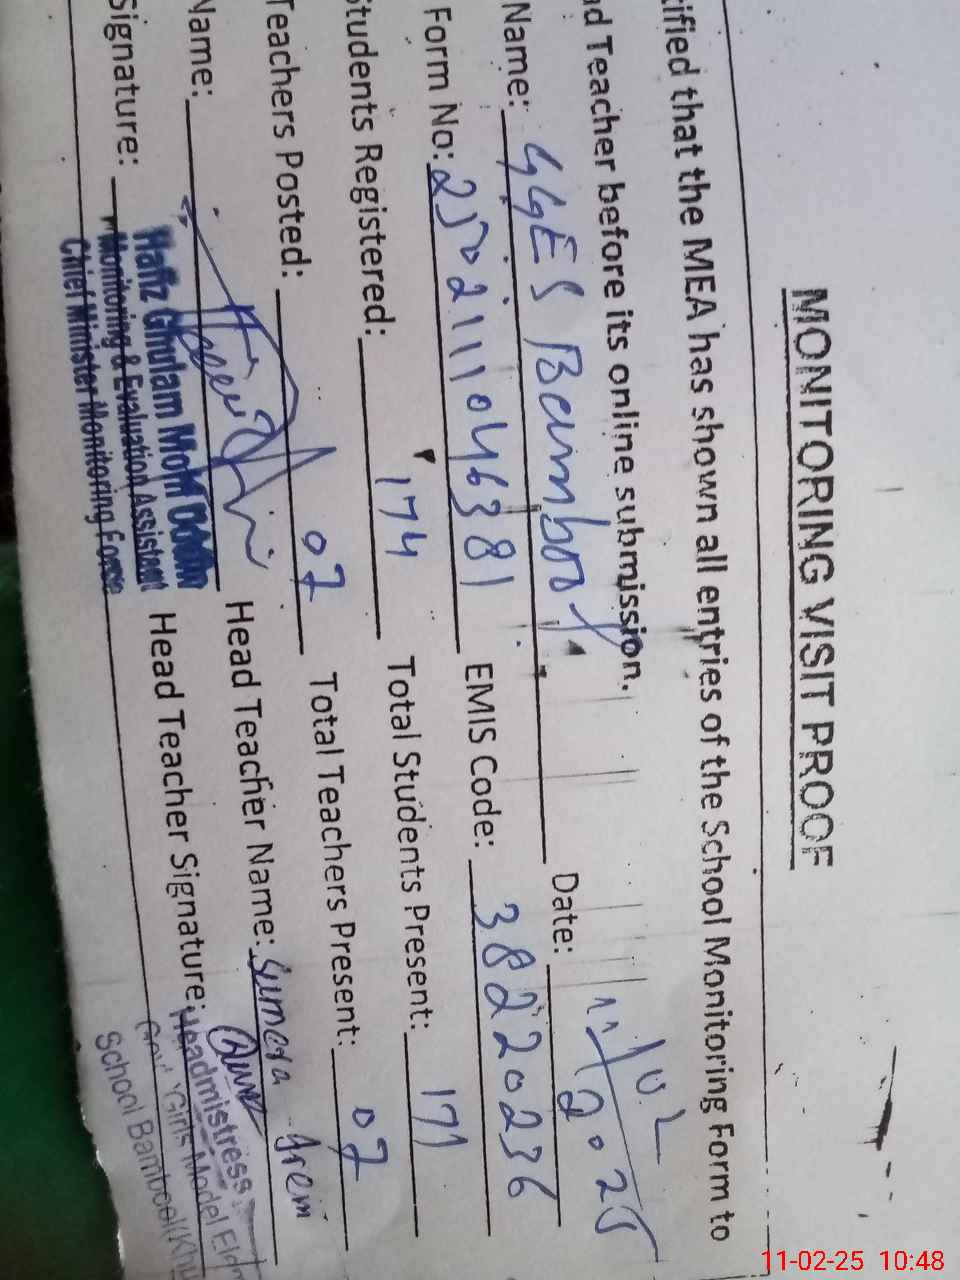 MONITORING VISIT PROOF
ified that the MEA has shown all entries of the School Monitoring Form to
d Teacher before its online submission.
Name: GGES Bcumbool Date: 11/02/2025
Form No: 2502111046381 EMIS Code: 38220236
Students Registered: 174 Total Students Present: 171
Teachers Posted: 07 Total Teachers Present: 07
Name: Head Teacher Name: Sumera
Signature: Head Teacher Signature:
Hafiz Ghulam
Monitoring & Evaluation Assistant
Chief Minister Monitoring Force
Headmistress
Govt Girls Model Ele
School Bambool(Khu
11-02-25 10:48